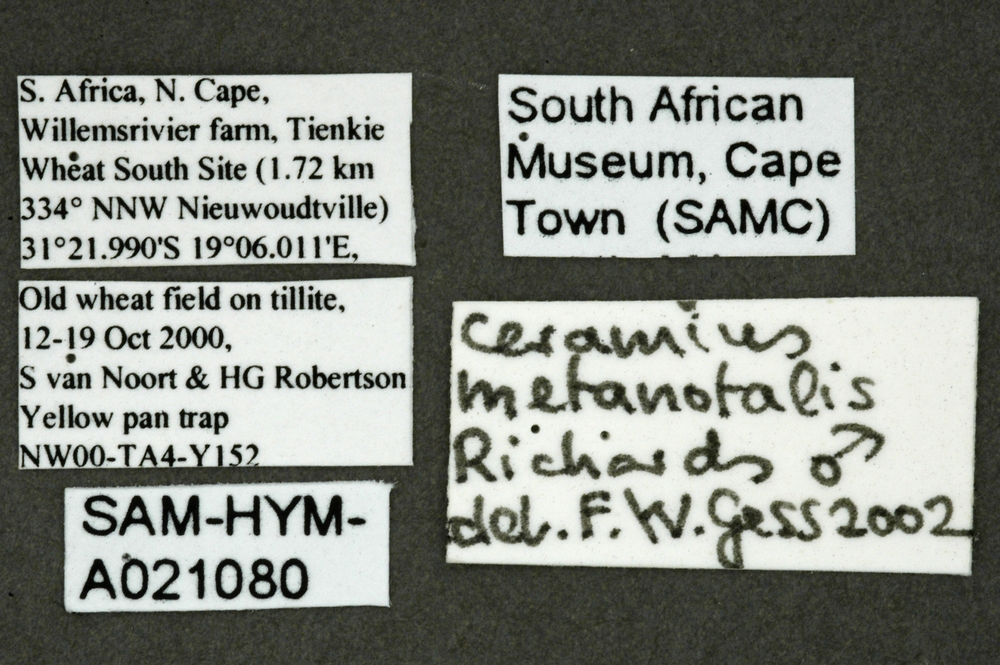 S. Africa, N. Cape,
Willemsrivier farm, Tienkie
Wheat South Site (1.72 km
334° NNW Nieuwoudtville)
31°21.990'S 19°06.011'E,
Old wheat field on tillite,
12-19 Oct 2000,
S van Noort & HG Robertson
Yellow pan trap
NW00-TA4-Y152
SAM-HYM-
A021080
South African
Museum, Cape
Town (SAMC)
Ceramius
metanotalis
Richards ♂
det. F.W. Gess 2002